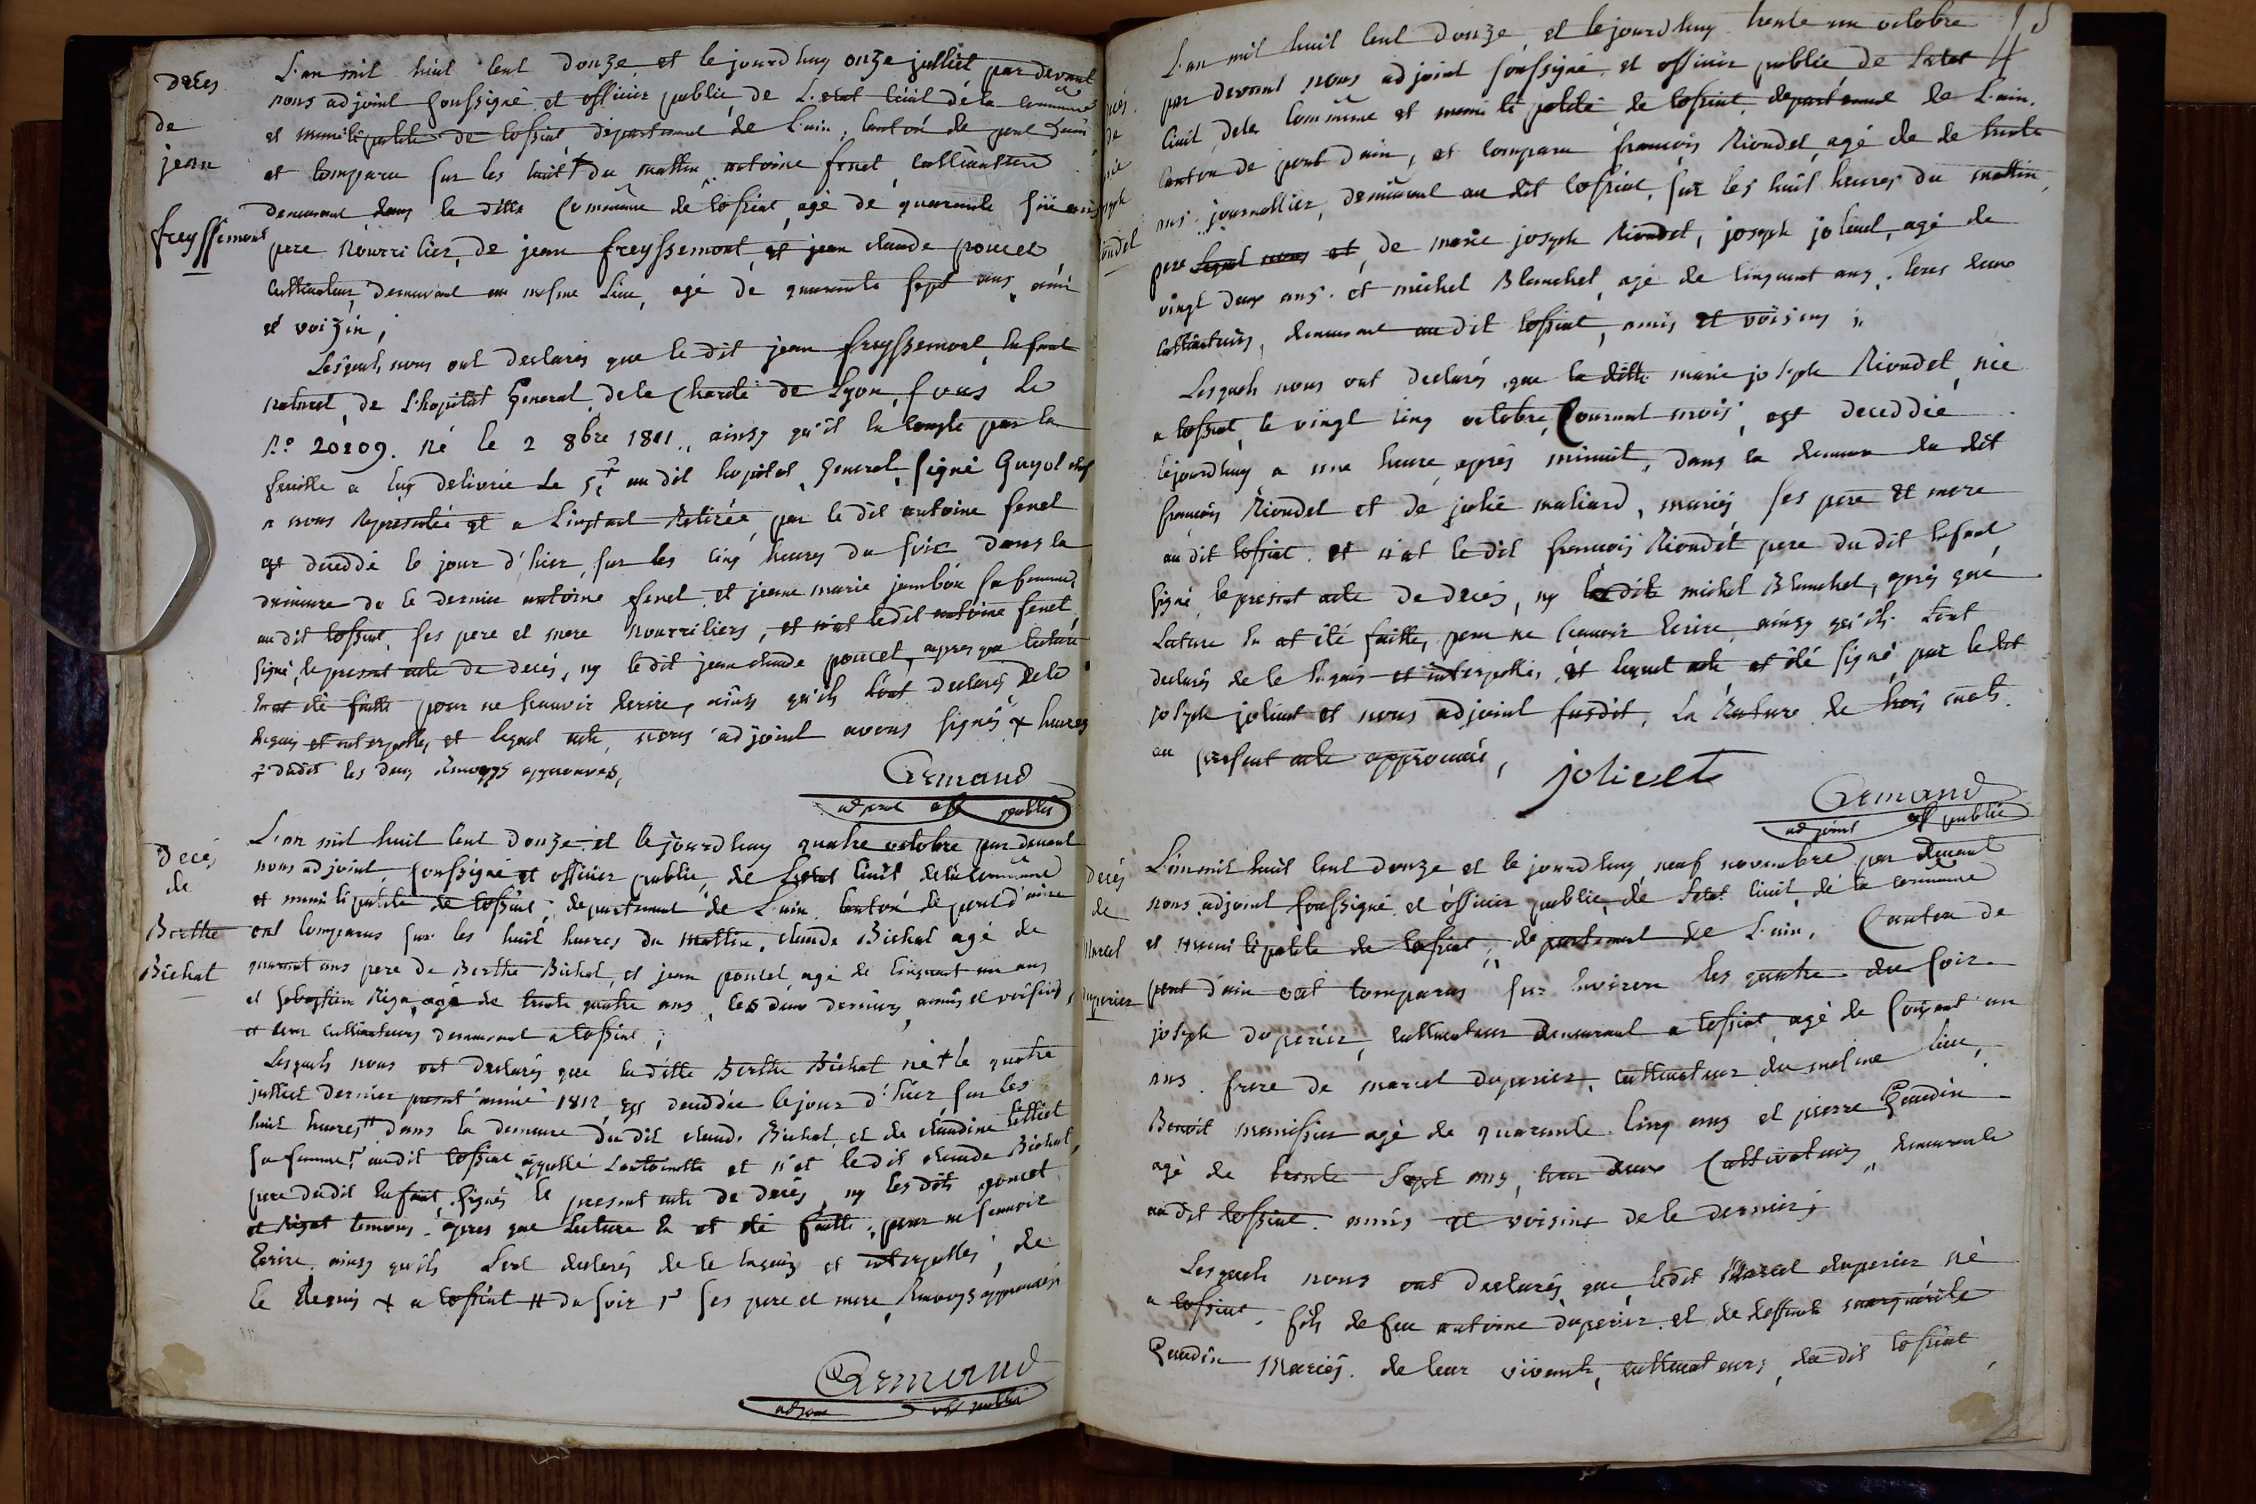 Decès
de
jean
freyssemont
L'an mil huit cent douze et lejourd'huy onze julliet par devant
nous adjoint soussigné et officier public de L'etat civil dela commune
et municipalité de tossiat departement de L'ain, canton de pont dain
et comparu sur les huit + du mattin antoine fenet cultivateur
demeurant dans la ditte Commune de tossiat, agé de quarante six ans
pere Nourricier, de jean freyssemont et jean claude poncet
cultivateur, demeurant au mesme Lieu, agé de quarante sept ans, ami
et voizin;
Lesquels nous ont declarés que le dit jean freyssemont, enfant
naturel, de L'hopital General dela Charité de Lyon, sous le
No. 20209. né le 2 8bre 1811., ainsy qu'il en conste par la
feuille a luy delivrée le 5 au dit hopital General, signé Guyot
a nous Representée et a L'instant Retirée, par le dit antoine fenet
est deceddé le jour d'hier, sur les cinq heures du soir dans la
demeure de le dernier antoine fenet et jeane marie jambon sa femme
au dit tossiat, ses pere et mere Nourriciers, et n'at ledit antoine fenet
signé, le present acte de decés, ny ledit jean claude poncet, apres que lecture
en at été faitte pour ne scavoir ecrire, ainsy qu'ils L'ont declarés de le
Requis et interpellés et lequel acte, nous adjoint avons signés + heures
dudit les deux Renvoys approuvés,
Armand
adjoint off public
Decés
de
Berthe
Bichat
L'an mil huit cent douze et le jourd'huy quatre octobre par devant
nous adjoint, soussigné et officier public, de L'etat civil dela commune
et municipalité de tossiat, departement de L'ain canton de pont d'ain
ont comparus sur les huit heures du mattin, claude Bichat agé de
quarant ans pere de Berthe Bichat, et jean poncet, agé de cinquant un ans
et sebastien Riga, agé de trente quatre ans, les deux derniers, amis et voisins,
et tous cultivateurs demeurant a tossiat;
Lesquels nous ont declarés que la ditte Berthe Bichat né + le quatre
julliet dernier present année 1812 est deceddée lejour d'hier, sur les
huit heures # dans la demeure du dit claude Bichat, et de claudine
sa femme audit tossiat appellé Lantoinette et n'at ledit claude Bichat,
pere dudit Enfant, signés le present acte de decés, ny les dits poncet
et Rigat temoins. apres que Lecture en at été faitte, pour ne scavoir
Ecrire ainsy qu'ils L'ont declarés de le Requis et interpellés, de
le Requis + a tossiat # du soir ses pere et mere, Renvoys approuvés
Armand
adjoint off public
L'an mil huit cent douze, et lejourd'huy trente un octobre
par devant nous adjoint soussigné, et officier public de L'etat
Civil, dela Commune et municipalité de tossiat, departement de L'ain.
Canton de pont dain, et comparu françois Rioudet, agé de de trente
ans journallier, demeurant au dit tossiat, sur les huit heures du mattin,
pere lequel nous et, de marie joseph Rioudet, joseph jolivet, agé de
vingt deux ans. et michel Blanchet, agé de cinquant ans, tous deux
cultivateurs, demeurant au dit tossiat, amis et voisins;
Lesquels nous ont declarés, que la ditte marie joseph Rioudet, née
a tossiat, le vingt cinq octobre, Courant mois, est deceddée
lejourd'huy a une heure, après minuit, dans la demeure du dit
françois Rioudet et de julie maliard, mariés ses pere et mere
au dit tossiat. et n'at le dit francois Rioudet pere du dit enfant,
signé, le present acte de decés, ny le dit michel Blanchet, aprés que
Lecture en at été faitte, pour ne scavoir Ecrire, ainsy qu'ils L'ont
declarés de le Requis et interpellés, et lequel acte, at été signé, par ledit
joseph jolivet et nous adjoint susdit, La Rature de trois mots
au present acte approuvée,
jolivet
Armand
adjoint off public
Decés
de
Marcel
duperier
L'an mil huit cent douze et le jourd'huy, neuf novembre par devant
nous, adjoint soussigné et officier public, de L'etat civil, de la commune
et municipalité de tossiat, departement de L'ain, Canton de
pont d'ain ont comparus sur Environ les quatre du soir
joseph duperier, cultivateur demeurant a tossiat, agé de soixant un
ans. frere de marcel duperier, cultivateur du mesme lieu,
Benoit monissier agé de quarante cinq ans et pierre Gaudin
agé de trente sept ans, tous deux Cultivateurs, demeurants
au dit tossiat. amis et voisins de le dernier;
Lesquels nous ont declarés que, ledit Marcel duperier né
a tossiat, fils de feu antoine duperier. et de deffunte marguerite
Gaudin Mariés. de leur vivants, cultivateurs, du dit tossiat,